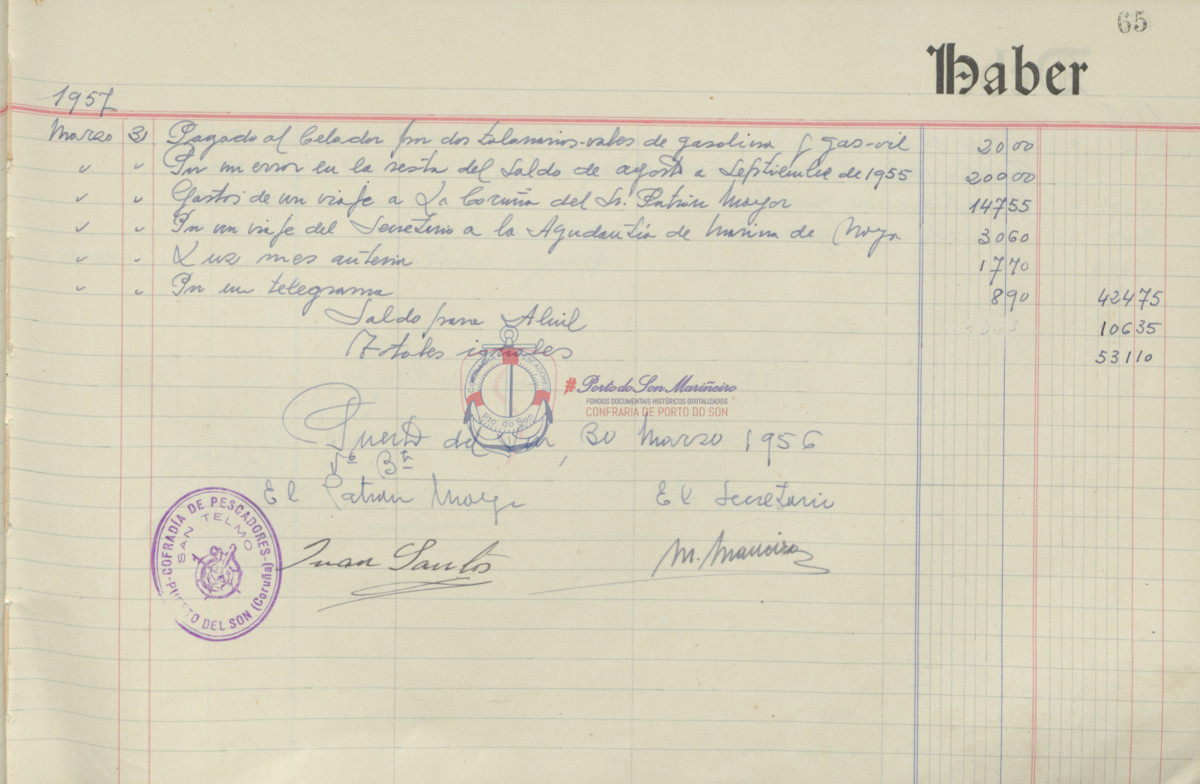 65
Haber
1957
Marzo 31 Pagado al Celador por dos talonarios-vales de gasolina y gas-oil 20 00
" " Por un error en la resta del Saldo de agosto a Septiembre de 1955 200 00
" " Gastos de un viaje a La Coruña del Sr. Patrón Mayor 147 55
" " Por un viaje del Secretario a la Ayudantía de Marina de Noya 30 60
" " Luz mes anterior 17 70
" " Por un telegrama 8 90 424 75
Saldo para Abril 106 35
Totales iguales 531 10
#Porto do Son Mariñeiro
FONDOS DOCUMENTAIS HISTÓRICOS DIXITALIZADOS
CONFRARÍA DE PORTO DO SON
Pto. do Son
Puerto del Son, 30 Marzo 1956
Vº Bº
El Patrón Mayor El Secretario
COFRADÍA DE PESCADORES
SAN TELMO
DEL SON (Coruña)
Juan Santos M. Maneiro